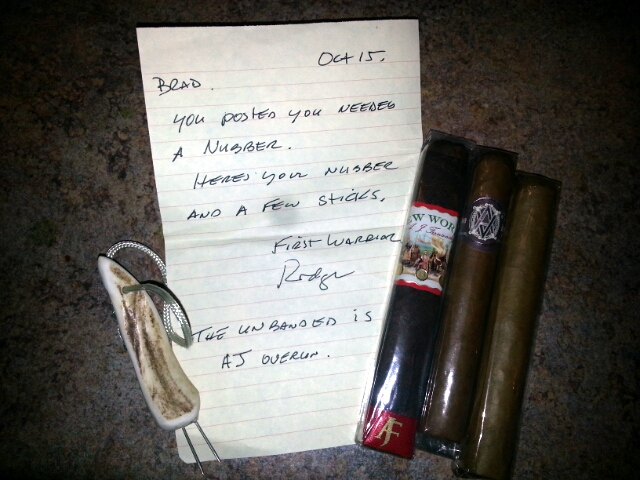 Oct 15.
BRAD.
YOU POSTED YOU NEEDED
A NUBBER.
HERES YOUR NUBBER
AND A FEW STICKS.
FIRST WARRIOR
Rodger
THE UNBANDED IS
AJ OVERUN.
NEW WORLD
AJF